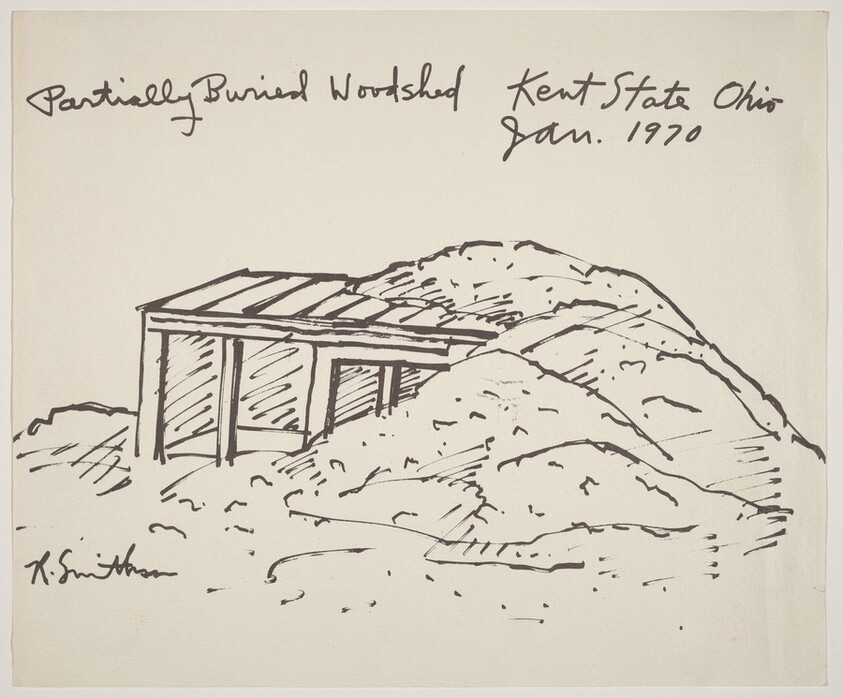 Partially Buried Woodshed Kent State Ohio
Jan. 1970
R. Smithson